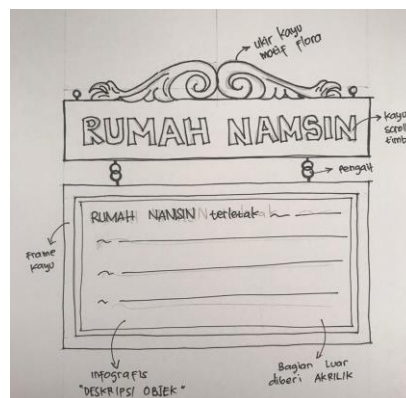 ukir kayu
motif flora
RUMAH NAMSIN
kayu
scroll
timb
pengait
RUMAH NAMSIN terletak
Frame
kayu
infografis
"DESKRIPSI OBJEK"
Bagian Luar
diberi AKRILIK